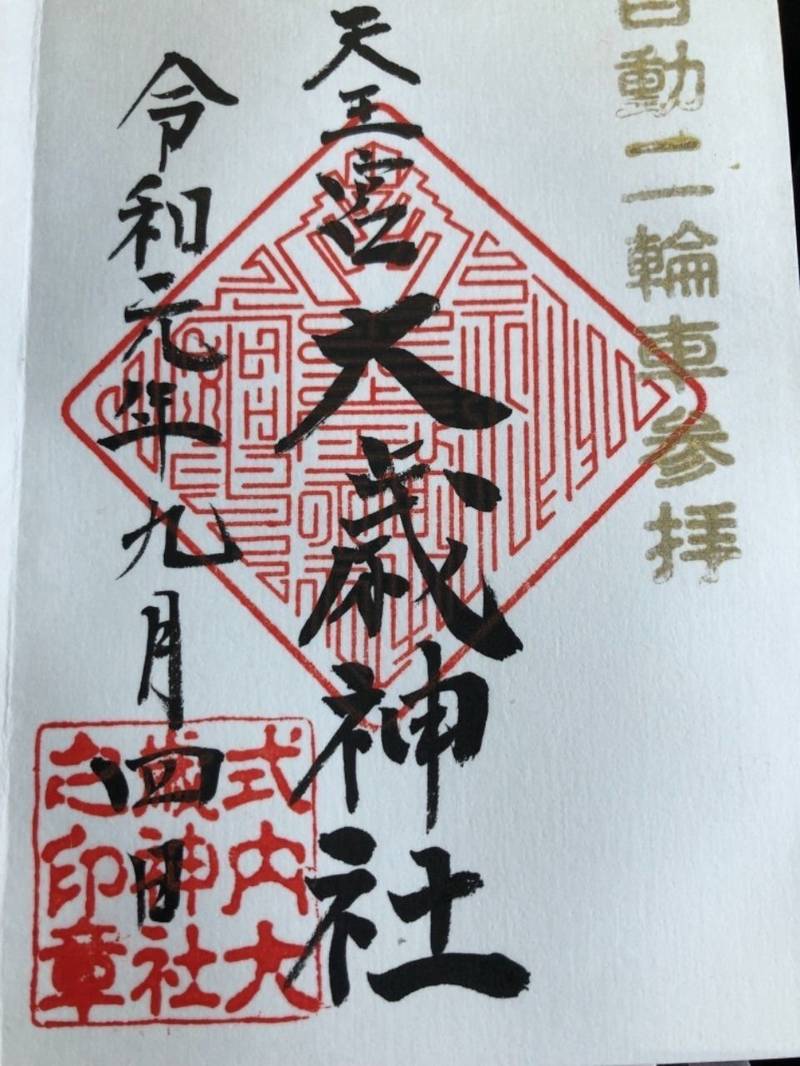 自動二輪車参拝
天王宮大歳神社
令和元年九月四日
式内大
歳神社
之印章